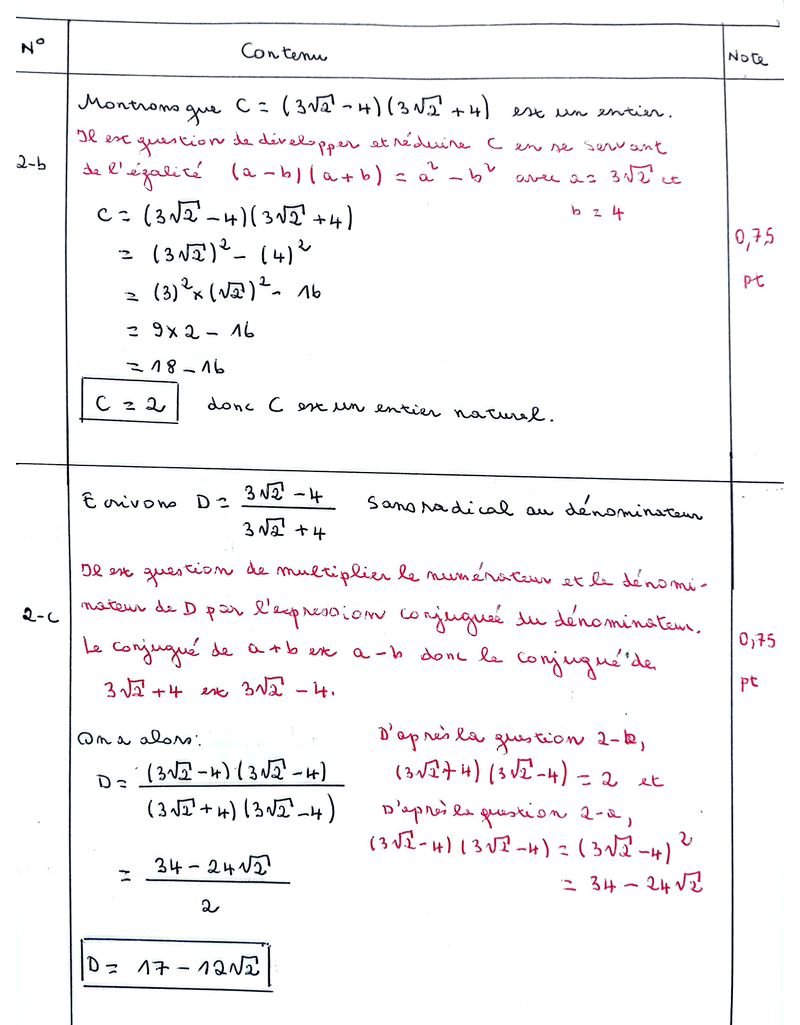 N° Contenu Note
2-b
Montrons que C = (3√2 - 4)(3√2 + 4) est un entier.
Il est question de développer et réduire C en se servant
de l'égalité (a - b)(a + b) = a² - b² avec a = 3√2 et
b = 4
C = (3√2 - 4)(3√2 + 4)
= (3√2)² - (4)²
= (3)² × (√2)² - 16
= 9 × 2 - 16
= 18 - 16
C = 2 donc C est un entier naturel.
0,75
pt
2-c
Ecrivons D = (3√2 - 4)/(3√2 + 4) sans radical au dénominateur
Il est question de multiplier le numérateur et le dénomi-
nateur de D par l'expression conjugueé du dénominateur.
Le conjugué de a + b est a - b donc le conjugué de
3√2 + 4 est 3√2 - 4.
0,75
pt
On a alors:
D = (3√2 - 4)(3√2 - 4)/(3√2 + 4)(3√2 - 4)
= (34 - 24√2)/2
D = 17 - 12√2
D'après la question 2-b,
(3√2 + 4)(3√2 - 4) = 2 et
D'après la question 2-a,
(3√2 - 4)(3√2 - 4) = (3√2 - 4)²
= 34 - 24√2